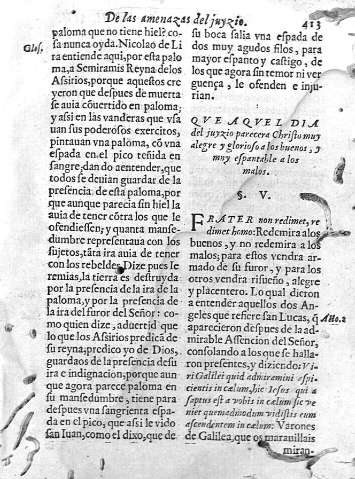 De las amenazas del juyzio.
413
paloma que no tiene hiel? co
sa nunca oyda. Nicolao de Li
Glos.
ra entiende aqui, por esta palo
ma, a Semiramis Reyna de los
Assirios, porque aquestos cre
yeron que despues de muerta
se auia cõuertido en paloma;
y assi en las vanderas que vsa
uan sus poderosos exercitos,
pintauan vna paloma, cõ vna
espada en el pico teñida en
sangre; dando a entender, que
todos se deuian guardar de la
presencia de esta paloma, por
que aunque parecia sin hiel la
auia de tener cõtra los que la
ofendiessen; y quanta manse-
dumbre representaua con los
sujetos, tãta ira auia de tener
con los rebeldes. Dize pues Ie
remias, la tierra es destruyda
por la presencia de la ira de la
paloma, y por la presencia de
la ira del furor del Señor: co-
mo quien dize, aduertid que
lo que los Assirios predicã de
su reyna, predico yo de Dios,
guardaos de la presencia de su
ira e indignacion, porque aun
que agora parece paloma en
su mansedumbre, tiene para
despues vna sangrienta espa-
da en el pico, que assi le vido
san Iuan, como el dixo, que de
su boca salia vna espada de
dos muy agudos filos, para
mayor espanto y castigo, de
los que agora sin temor ni ver
guença, le ofenden e inju-
rian.
QVE AQVEL DIA
del juyzio parecera Christo muy
alegre y glorioso a los buenos, y
muy espantable a los
malos.
§. V.
FRATER non redimet, re
dimet homo: Redemira a los
buenos, y no redemira a los
malos; para estos vendra ar-
mado de su furor, y para los
otros vendra risueño, alegre
y placentero. Lo qual dieron
a entender aquellos dos An-
geles que refiere san Lucas, q̃
Act. 1.
aparecieron despues de la ad-
mirable Assencion del Señor,
consolando a los que se halla-
ron presentes, y diziendo: Vi-
ri Galilei quid admiramini aspi-
cientis in cælum, hic Iesus qui a
sumptus est a vobis in cælum sic ve
niet quemadmodum vidistis eum
ascendentem in cælum: Varones
de Galilea, que os marauillais
miran-